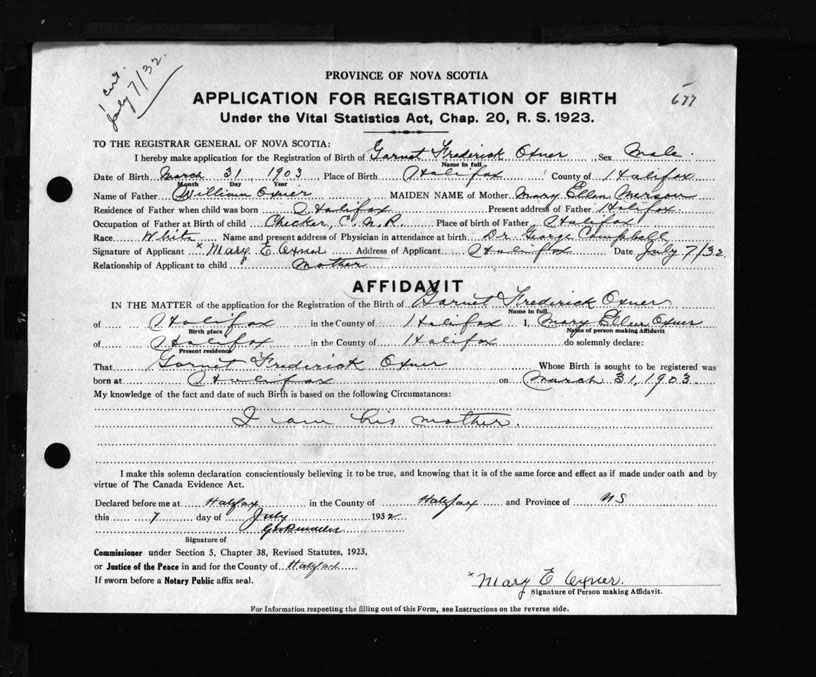 1 cert.
July 7/32.
677
PROVINCE OF NOVA SCOTIA
APPLICATION FOR REGISTRATION OF BIRTH
Under the Vital Statistics Act, Chap. 20, R. S. 1923.
TO THE REGISTRAR GENERAL OF NOVA SCOTIA:
I hereby make application for the Registration of Birth of Garnet Frederick Oxner Sex Male
Name in full
Date of Birth March 31 1903 Place of Birth Halifax County of Halifax
Month Day Year
Name of Father William Oxner MAIDEN NAME of Mother Mary Ellen
Residence of Father when child was born Halifax Present address of Father Halifax
Occupation of Father at Birth of child Checker, C.N.R. Place of birth of Father Halifax
Race White Name and present address of Physician in attendance at birth Dr. George Campbell
Signature of Applicant x Mary E Oxner Address of Applicant Halifax Date July 7/32
Relationship of Applicant to child Mother
AFFIDAVIT
IN THE MATTER of the application for the Registration of the Birth of Garnet Frederick Oxner
Name in full
of Halifax in the County of Halifax I, Mary Ellen Oxner
Birth place Name of person making Affidavit
of Halifax in the County of Halifax do solemnly declare:
Present residence
That Garnet Frederick Oxner Whose Birth is sought to be registered was
born at Halifax on March 31, 1903
My knowledge of the fact and date of such Birth is based on the following Circumstances:
I am his mother.
I make this solemn declaration conscientiously believing it to be true, and knowing that it is of the same force and effect as if made under oath and by
virtue of The Canada Evidence Act.
Declared before me at Halifax in the County of Halifax and Province of NS
this 7 day of July 1932
Signature of
Commissioner under Section 5, Chapter 38, Revised Statutes, 1923,
or Justice of the Peace in and for the County of Halifax
If sworn before a Notary Public affix seal.
x Mary E Oxner.
Signature of Person making Affidavit.
For Information respecting the filling out of this Form, see Instructions on the reverse side.